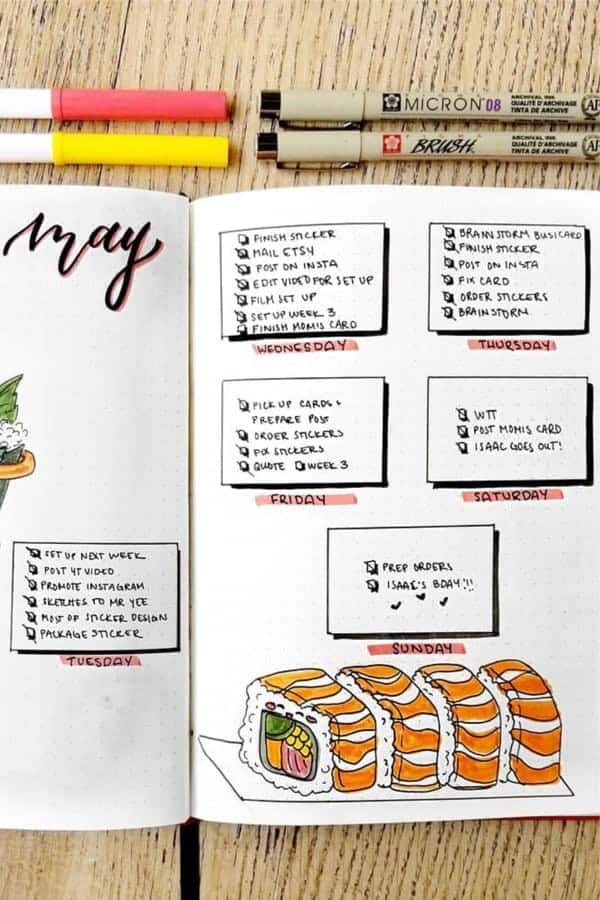 MICRON 08
ARCHIVAL INK
QUALITÉ D'ARCHIVAGE
TINTA DE ARCHIVO
BRUSH
ARCHIVAL INK
QUALITÉ D'ARCHIVAGE
TINTA DE ARCHIVO
may
SET UP NEXT WEEK
POST YT VIDEO
PROMOTE INSTAGRAM
SKETCHES TO MR YEE
MOST OF STICKER DESIGN
PACKAGE STICKER
TUESDAY
FINISH STICKER
MAIL ETSY
POST ON INSTA
EDIT VIDEO FOR SET UP
FILM SET UP
SET UP WEEK 3
FINISH MOM'S CARD
WEDNESDAY
BRAINSTORM BUSICARD
FINISH STICKER
POST ON INSTA
FIX CARD
ORDER STICKERS
BRAINSTORM
THURSDAY
PICK UP CARDS +
PREPARE POST
ORDER STICKERS
FIX STICKERS
QUOTE WEEK 3
FRIDAY
WTT
POST MOM'S CARD
ISAAC GOES OUT!
SATURDAY
PREP ORDERS
ISAAC'S BDAY!!!
SUNDAY